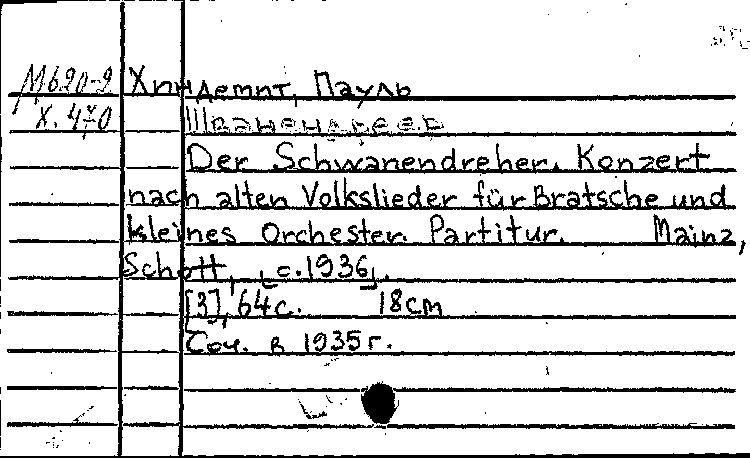 М620-2 Хиндемит, Пауль
Х. 470 Шваненд реер
Der Schwanendreher. Konzert
nach alten Volkslieder für Bratsche und
kleines Orchester. Partitur. Mainz,
Schott, [c.1936].
[3], 64 с. 18cm
Соч. в 1935 г.